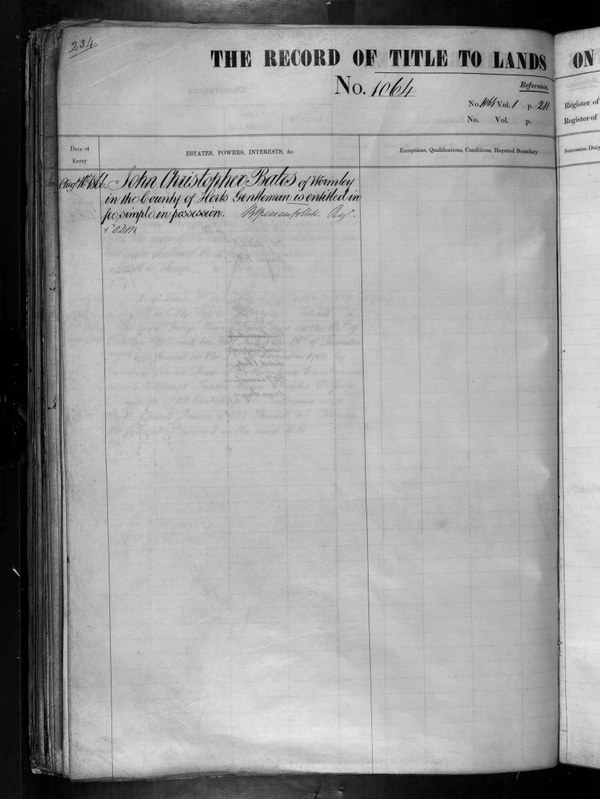 234
THE RECORD OF TITLE TO LANDS
ON
No. 1064
Reference.
No. 1064 Vol. 1 p. 211
No. Vol. p.
Register of
Register of
Date of Entry
ESTATES, POWERS, INTERESTS, &c.
Exceptions, Qualifications, Conditions, Disputed Boundary
Succession Duty
John Christopher Bates of Wormley
in the County of Herts Gentleman is entitled in
fee simple in possession. Regr.